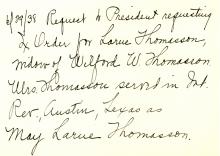 6/29/38 Request to President requesting
Ex Order for Larue Thomasson,
widow of Wilford W Thomason
Mrs. Thomasson served in Int.
Rev, Austin, Texas as
May Larue Thomasson.